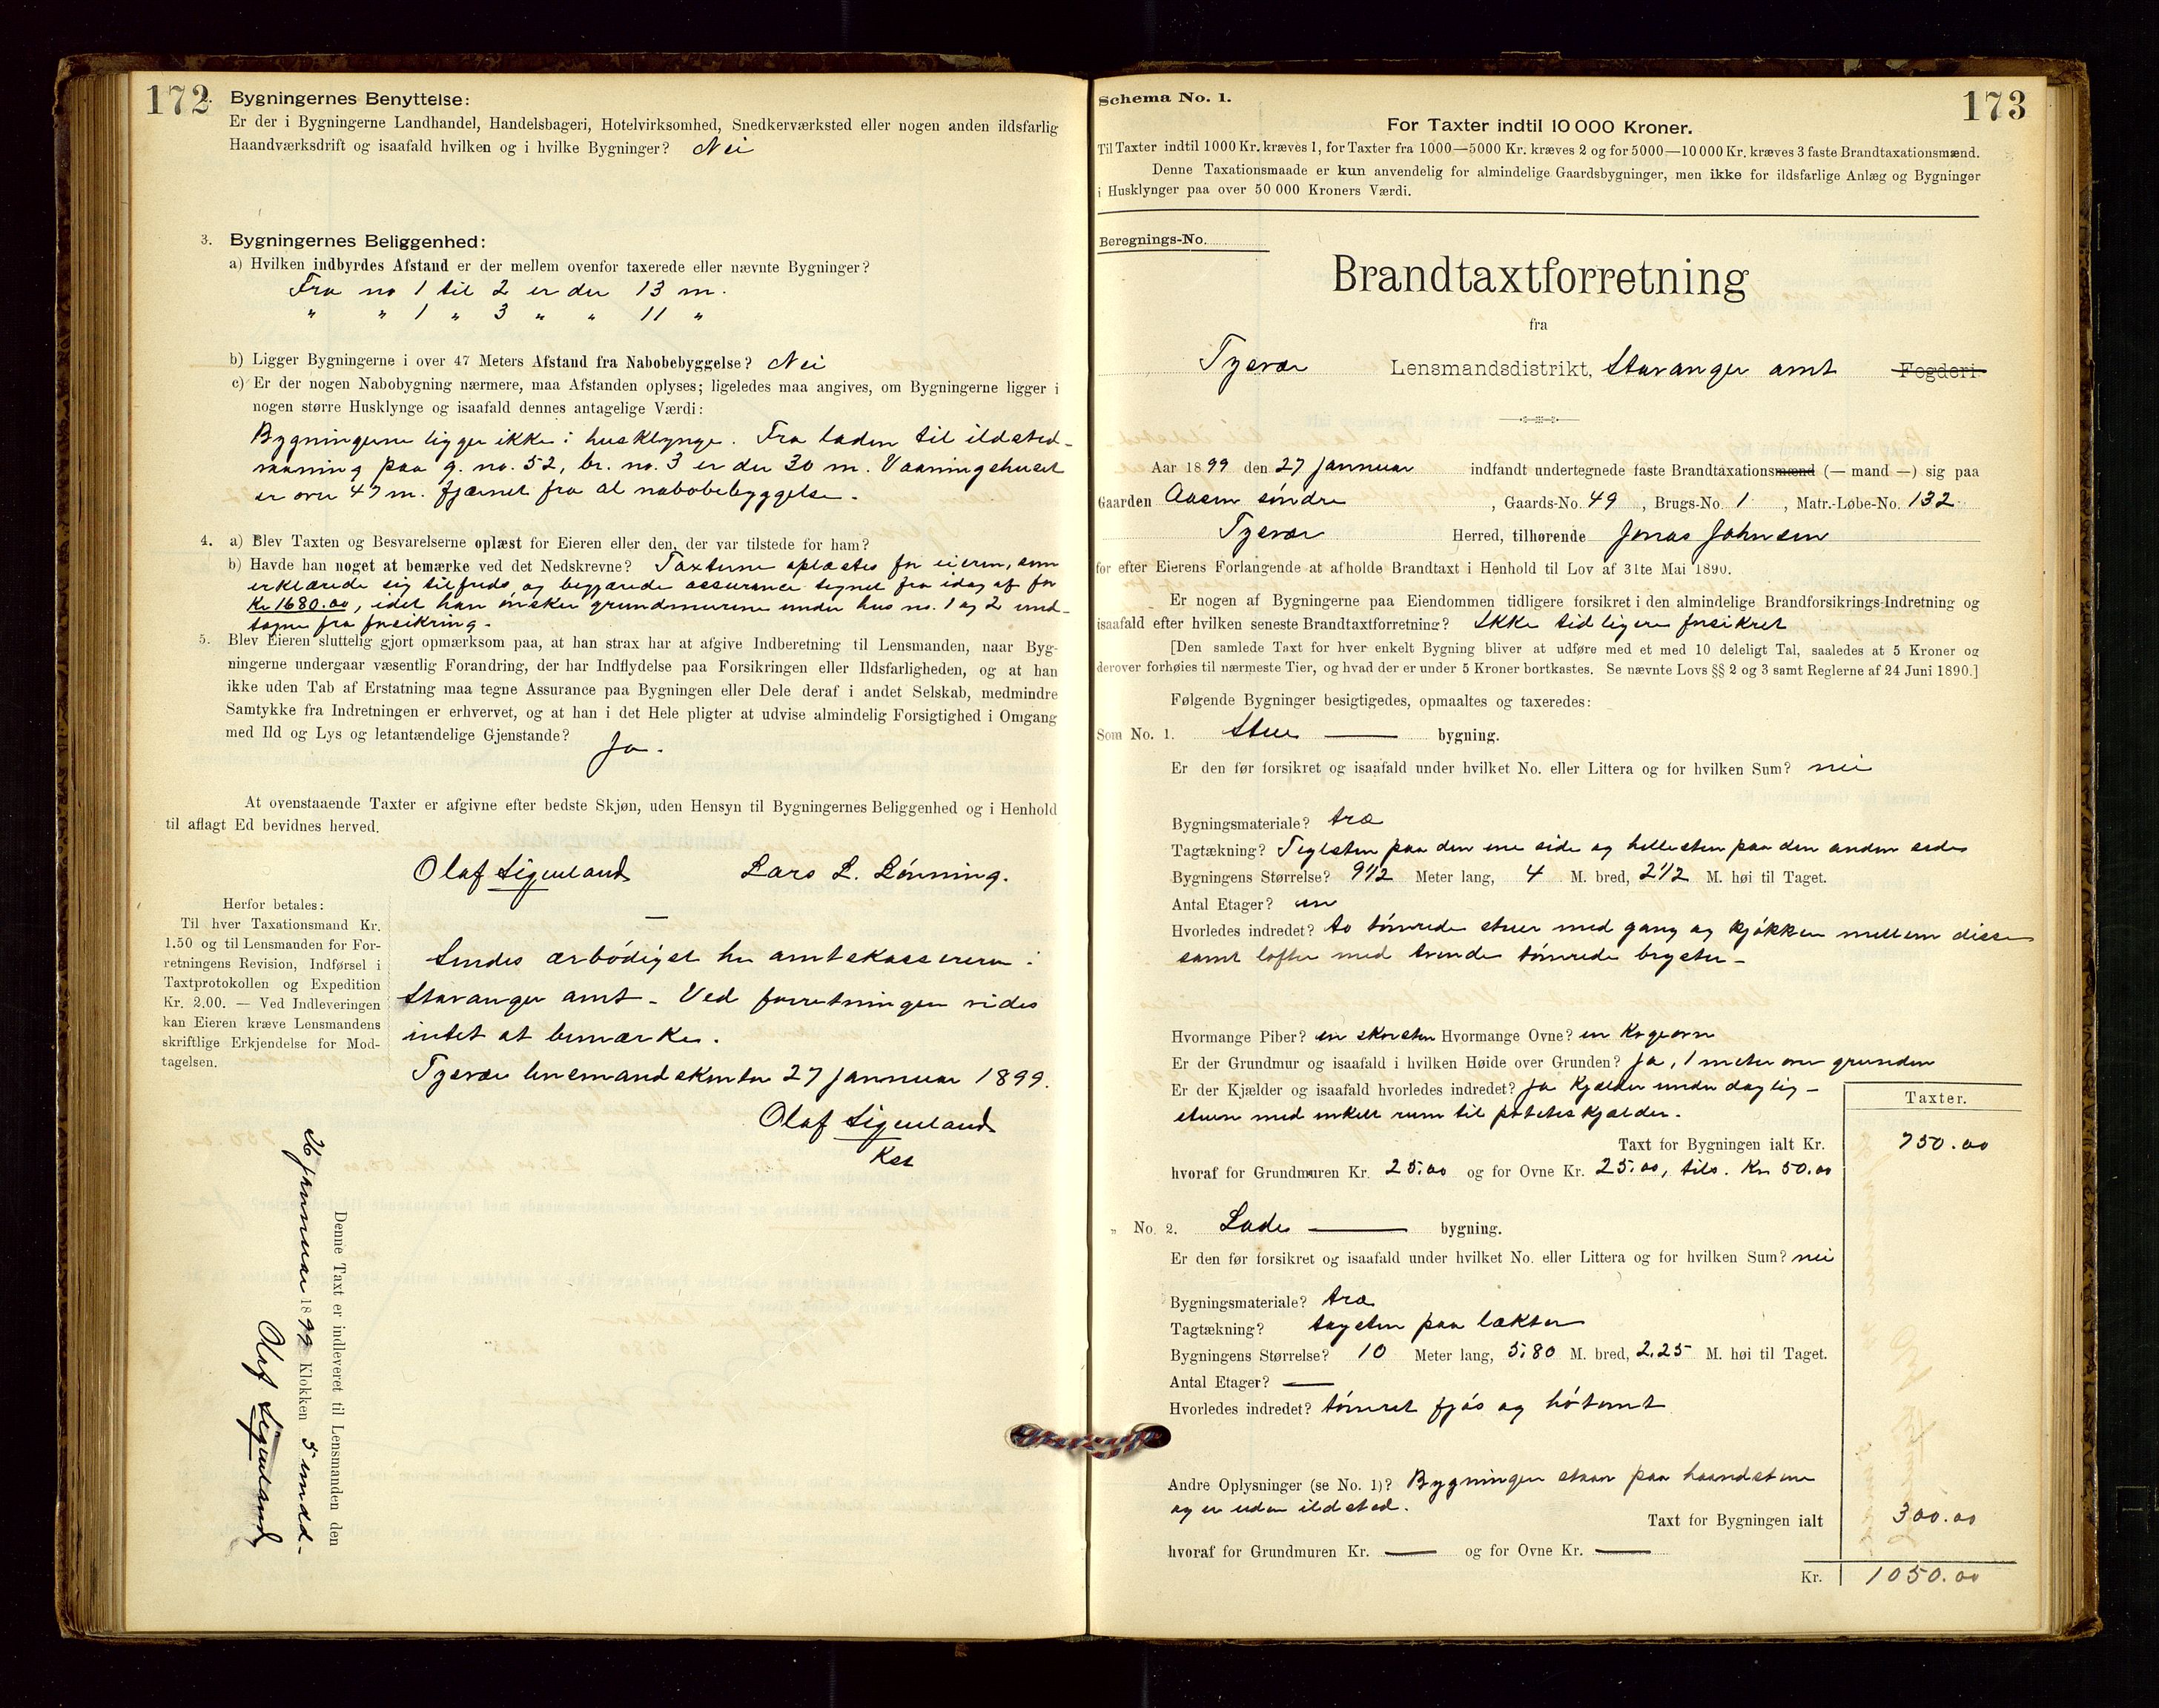 172
2. Bygningernes Benyttelse:
Er der i Bygningerne Landhandel, Handelsbageri, Hotelvirksomhed, Snedkerværksted eller nogen anden ildsfarlig
Haandværksdrift og isaafald hvilken og i hvilke Bygninger? Nei
3. Bygningernes Beliggenhed:
a) Hvilken indbyrdes Afstand er der mellem ovenfor taxerede eller nævnte Bygninger?
Fra no 1 til 2 er der 13 m.
" " 1 " 3 " " 11 "
b) Ligger Bygningerne i over 47 Meters Afstand fra Nabobebyggelse? Nei
c) Er der nogen Nabobygning nærmere, maa Afstanden oplyses; ligeledes maa angives, om Bygningerne ligger i
nogen større Husklynge og isaafald dennes antagelige Værdi:
Bygningerne ligger ikke i husklynge. Fra laden til ildsted-
vaaning paa g. no. 52, br. no. 3 er der 30 m. Vaaningshuset
er over 47 m. fjærnet fra al nabobebyggelse.
4. a) Blev Taxten og Besvarelserne oplæst for Eieren eller den, der var tilstede for ham?
b) Havde han noget at bemærke ved det Nedskrevne? Taxterne oplæstes for eieren, som
erklærede sig tilfreds og begjærede assurance tegnet fra idag af for
Kr 1680.00, idet han ønsker grundmurene under hus no. 1 og 2 und-
tagne fra forsikring.
5. Blev Eieren sluttelig gjort opmærksom paa, at han strax har at afgive Indberetning til Lensmanden, naar Byg-
ningerne undergaar væsentlig Forandring, der har Indflydelse paa Forsikringen eller Ildsfarligheden, og at han
ikke uden Tab af Erstatning maa tegne Assurance paa Bygningen eller Dele deraf i andet Selskab, medmindre
Samtykke fra Indretningen er erhvervet, og at han i det Hele pligter at udvise almindelig Forsigtighed i Omgang
med Ild og Lys og letantændelige Gjenstande? Ja.
At ovenstaaende Taxter er afgivne efter bedste Skjøn, uden Hensyn til Bygningernes Beliggenhed og i Henhold
til aflagt Ed bevidnes herved.
Olaf Sigveland Lars L. Lønning.
Herfor betales:
Til hver Taxationsmand Kr.
1.50 og til Lensmanden for For-
retningens Revision, Indførsel i
Taxtprotokollen og Expedition
Kr. 2.00. — Ved Indleveringen
kan Eieren kræve Lensmandens
skriftlige Erkjendelse for Mod-
tagelsen.
Sendes ærbødigst hr amtskassereren i
Stavanger amt. Ved forretningen vides
intet at bemærke.
Tysvær lensmandskontor 27 Jannuar 1899.
Olaf Sigveland
Kst
Denne Taxt er indleveret til Lensmanden den
Jannuar 1899 Klokken 5
Olaf Sigveland
173
Schema No. 1.
For Taxter indtil 10 000 Kroner.
Til Taxter indtil 1000 Kr. kræves 1, for Taxter fra 1000—5000 Kr. kræves 2 og for 5000—10 000 Kr. kræves 3 faste Brandtaxationsmænd.
Denne Taxationsmaade er kun anvendelig for almindelige Gaardsbygninger, men ikke for ildsfarlige Anlæg og Bygninger
i Husklynger paa over 50 000 Kroners Værdi.
Beregnings-No.
Brandtaxtforretning
fra
Tysvær Lensmandsdistrikt, Stavanger amt Fogderi
Aar 1899 den 27 Jannuar indfandt undertegnede faste Brandtaxationsmænd (— mand —) sig paa
Gaarden Aasen søndre, Gaards-No. 49, Brugs-No. 1, Matr.-Løbe-No. 132
Tysvær Herred, tilhørende Jonas Johnsen
for efter Eierens Forlangende at afholde Brandtaxt i Henhold til Lov af 31te Mai 1890.
Er nogen af Bygningerne paa Eiendommen tidligere forsikret i den almindelige Brandforsikrings-Indretning og
isaafald efter hvilken seneste Brandtaxtforretning? Ikke tidligere forsikret
[Den samlede Taxt for hver enkelt Bygning bliver at udføre med et med 10 deleligt Tal, saaledes at 5 Kroner og
derover forhøies til nærmeste Tier, og hvad der er under 5 Kroner bortkastes. Se nævnte Lovs §§ 2 og 3 samt Reglerne af 24 Juni 1890.]
Følgende Bygninger besigtigedes, opmaaltes og taxeredes:
Som No. 1. Stue — bygning.
Er den før forsikret og isaafald under hvilket No. eller Littera og for hvilken Sum? nei
Bygningsmateriale? træ
Tagtækning? Teglsten paa den ene side og hellesten paa den anden side
Bygningens Størrelse? 9 1/2 Meter lang, 4 M. bred, 2 1/2 M. høi til Taget.
Antal Etager? en
Hvorledes indredet? to tømrede stuer med gang og kjøkken mellem disse
samt lofter med tvende tømrede bryster
Hvormange Piber? en skorsten Hvormange Ovne? en kogeovn
Er der Grundmur og isaafald i hvilken Høide over Grunden? Ja, 1 meter over grunden
Er der Kjælder og isaafald hvorledes indredet? Ja Kjælder under daglig-
stuen med enkelt rum til potetskjælder.
Taxter.
Taxt for Bygningen ialt Kr. 750.00
hvoraf for Grundmuren Kr. 25.00 og for Ovne Kr. 25.00, tils. Kr 50.00
" No. 2. Lade — bygning.
Er den før forsikret og isaafald under hvilket No. eller Littera og for hvilken Sum? nei
Bygningsmateriale? træ
Tagtækning? tagsten paa lækter
Bygningens Størrelse? 10 Meter lang, 5.80 M. bred, 2.25 M. høi til Taget.
Antal Etager? —
Hvorledes indredet? tømret fjøs og høtomt
Andre Oplysninger (se No. 1)? Bygningen staar paa haandstene
og er uden ildsted.
Taxt for Bygningen ialt 300.00
hvoraf for Grundmuren Kr. — og for Ovne Kr. —
Kr. 1050.00